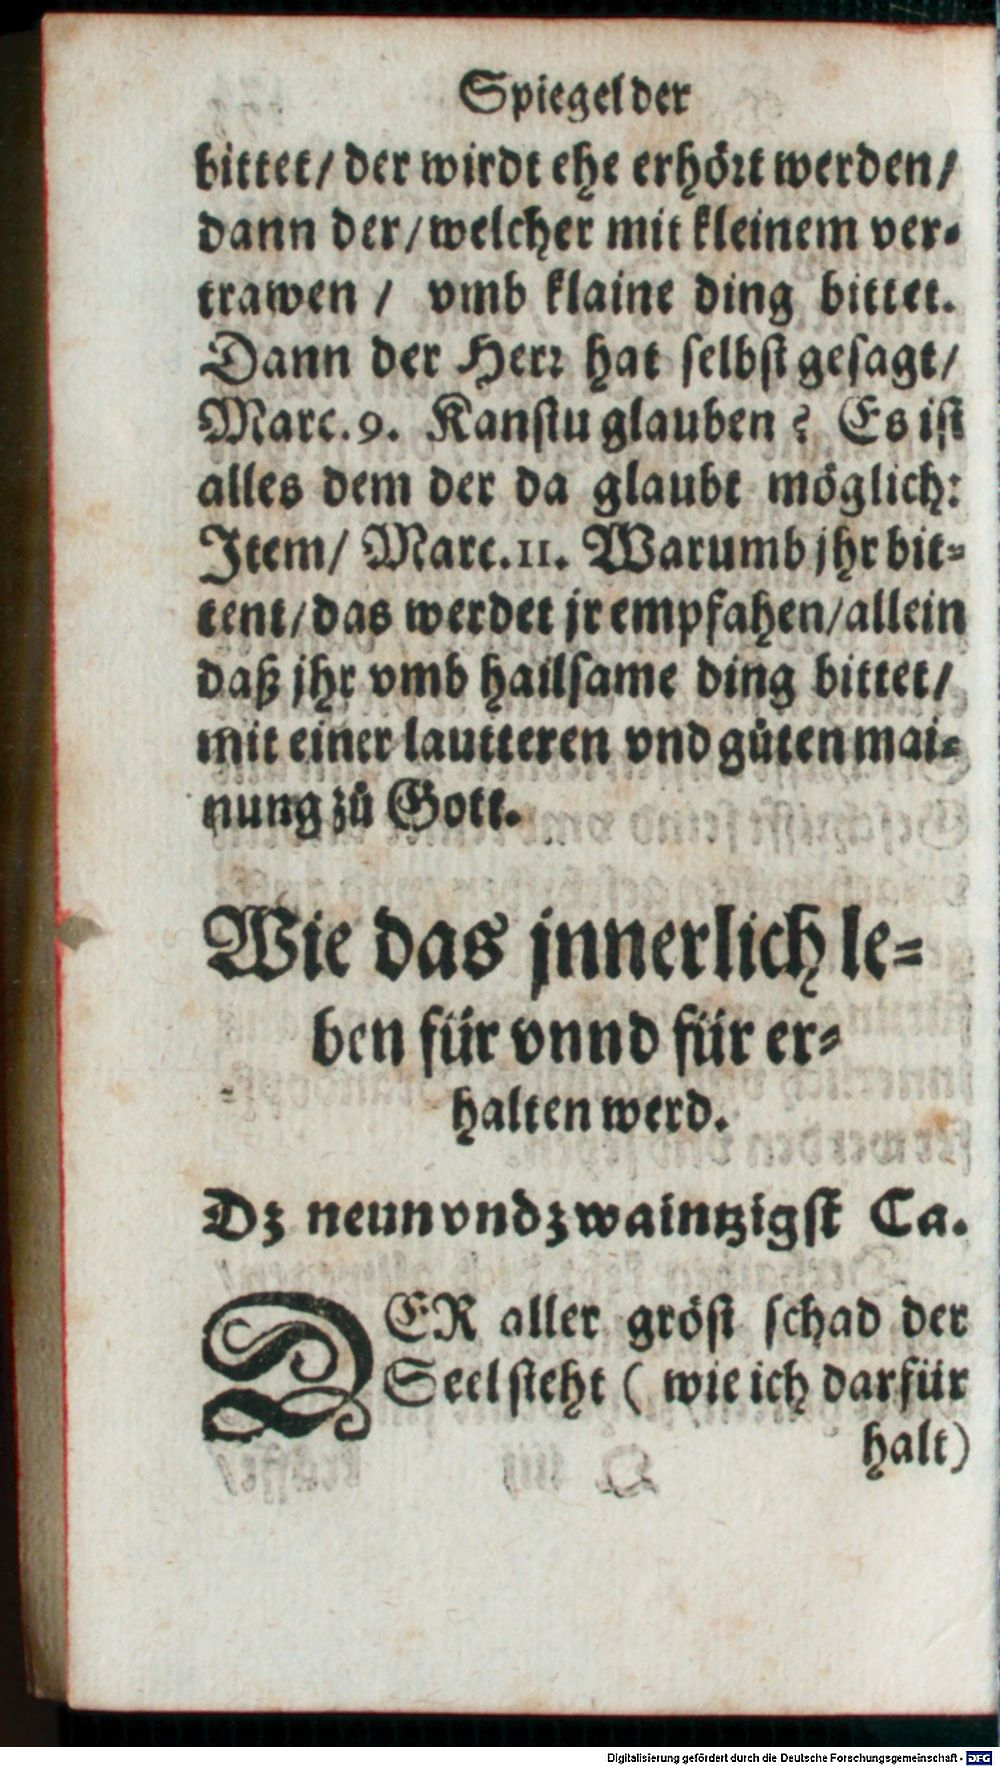 Spiegel der
bittet/ der wirdt ehe erhört werden/
dann der/ welcher mit kleinem ver-
trawen / vmb klaine ding bittet.
Dann der Herr hat selbst gesagt/
Marc. 9. Kanstu glauben? Es ist
alles dem der da glaubt möglich:
Item/ Marc. 11. Warumb jhr bit-
tent/ das werdet jr empfahen/ allein
daß jhr vmb hailsame ding bittet/
mit einer lautteren vnd gůten mai-
nung zů Gott.
Wie das jnnerlich le-
ben für vnnd für er-
halten werd.
Dz neunvndzwaintzigst Ca.
DER aller gröst schad der
Seel steht ( wie ich darfür
halt)
Digitalisierung gefördert durch die Deutsche Forschungsgemeinschaft - DFG